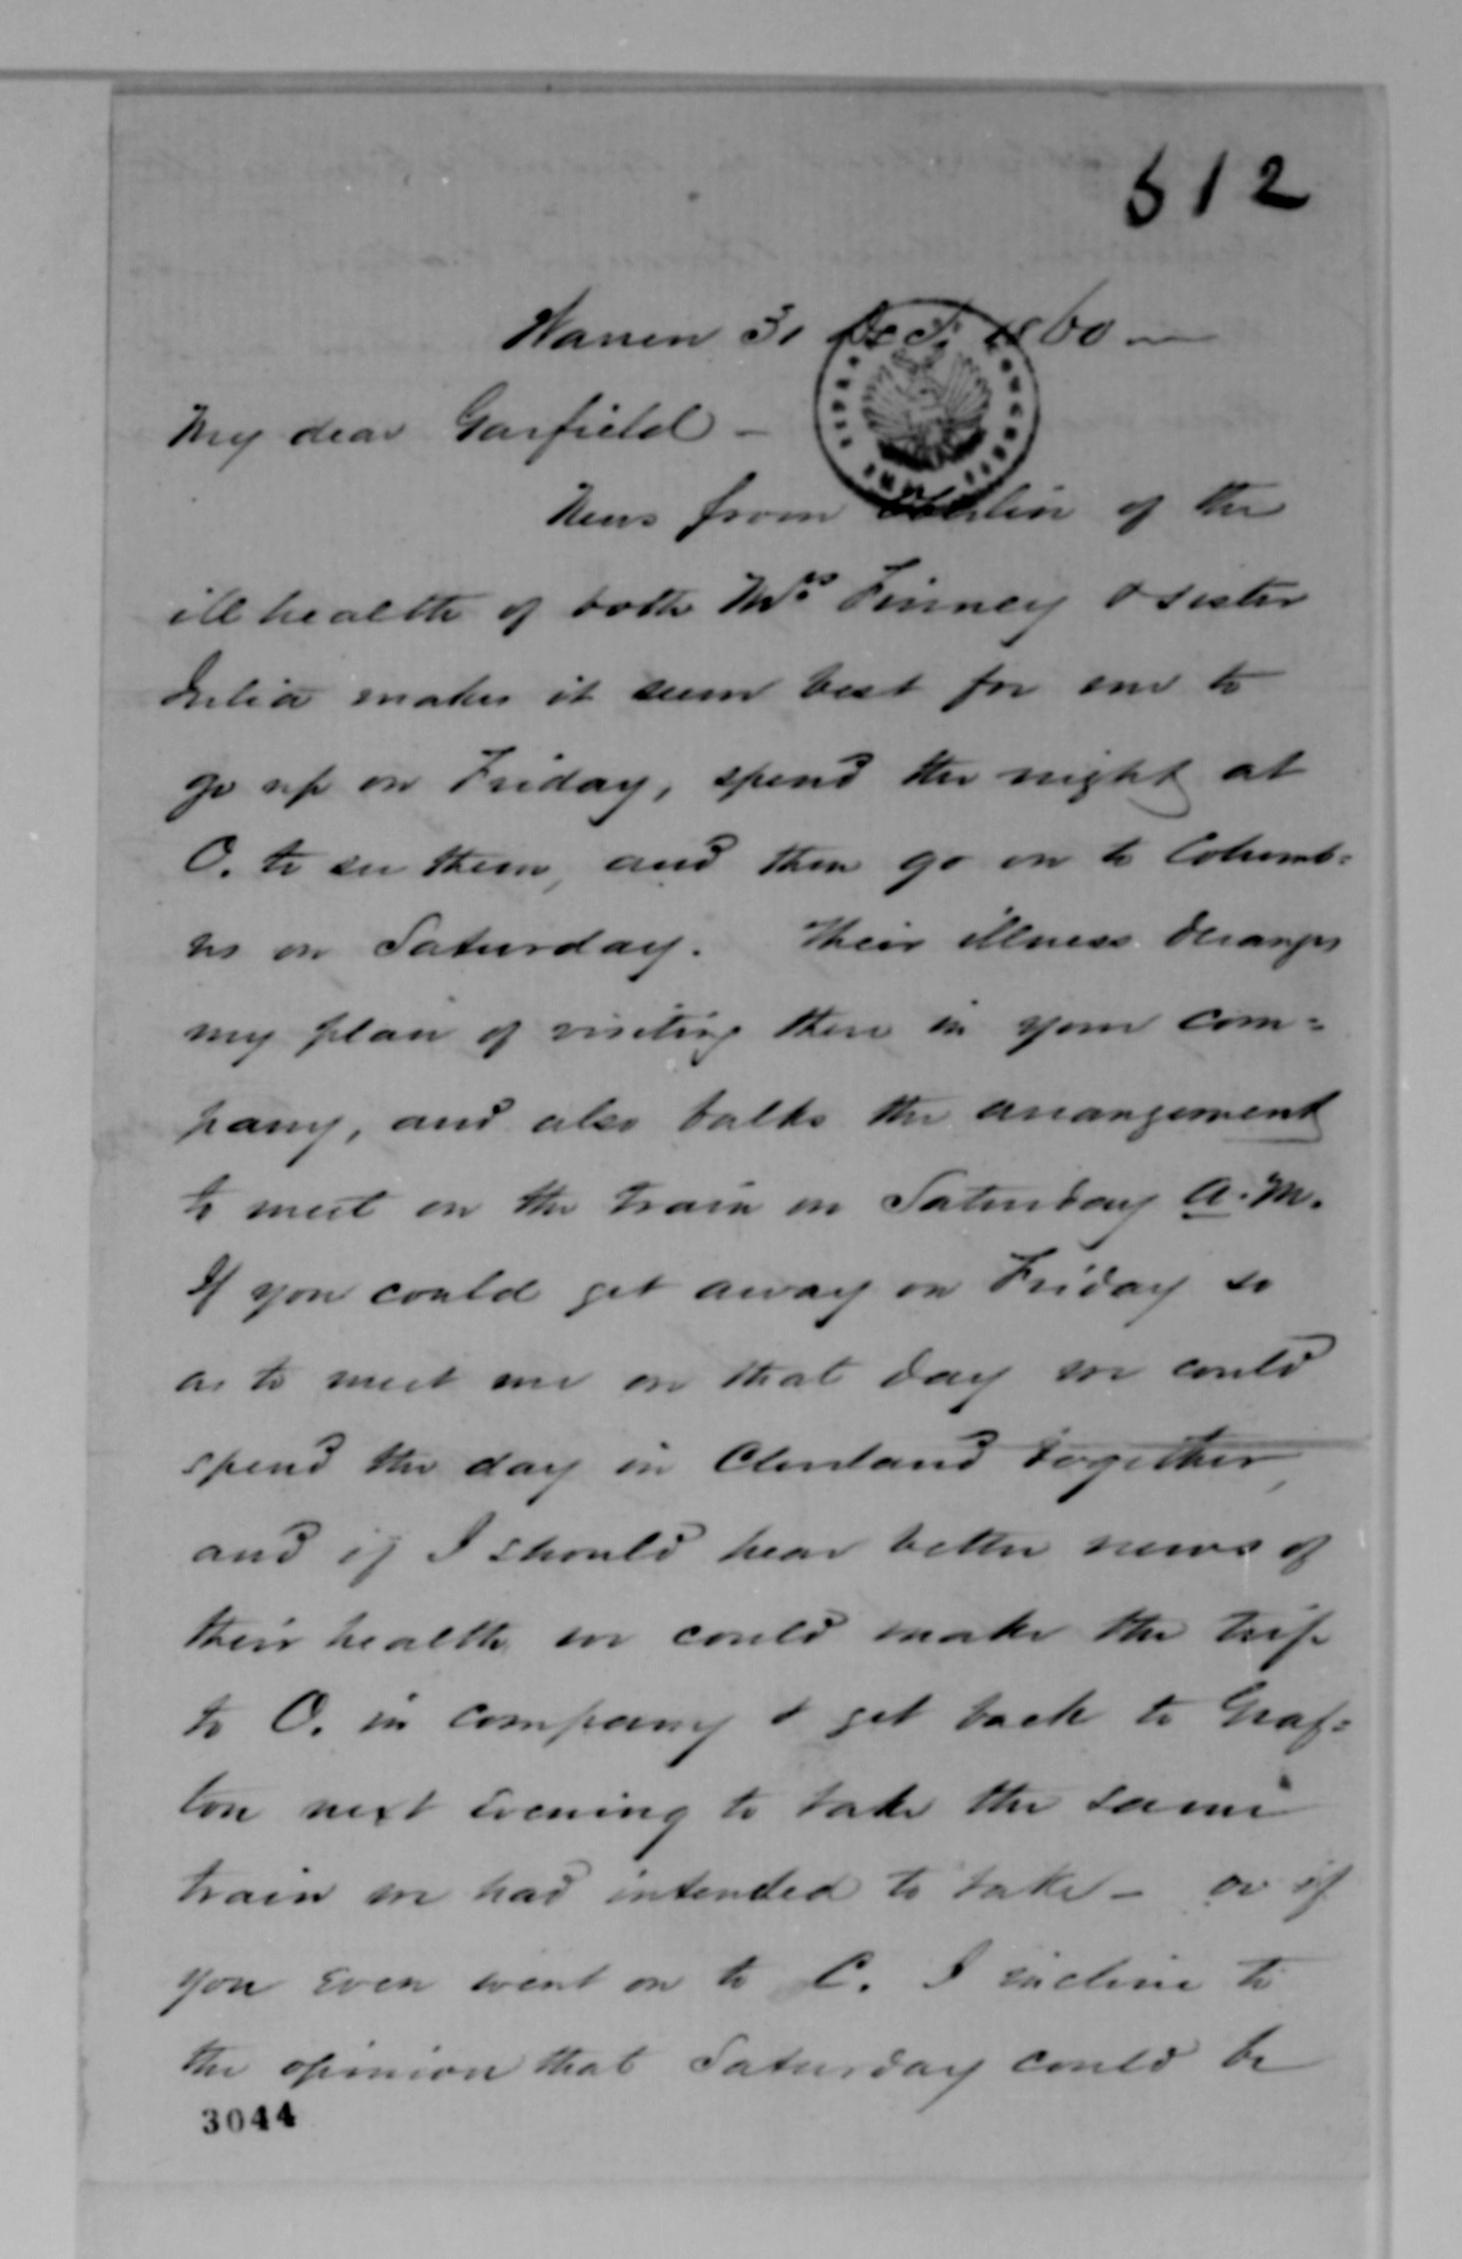 512
Warren 31 Dec. 1860 —
My dear Garfield —
News from Oberlin of the
ill health of both Mrs. Finney & sister
Julia makes it seem best for me to
go up on Friday, spend the night at
O. to see them, and then go on to Columb=
us on Saturday. Their illness deranges
my plan of visiting there in your com=
pany, and also balks the arrangement
to meet on the train on Saturday A.M.
If you could get away on Friday so
as to meet me on that day we could
spend the day in Cleveland together,
and if I should hear better news of
their health we could make the trip
to O. in company & get back to Graf=
ton next evening to take the same
train we had intended to take — or if
you even went on to C. I incline to
the opinion that Saturday could be
3044